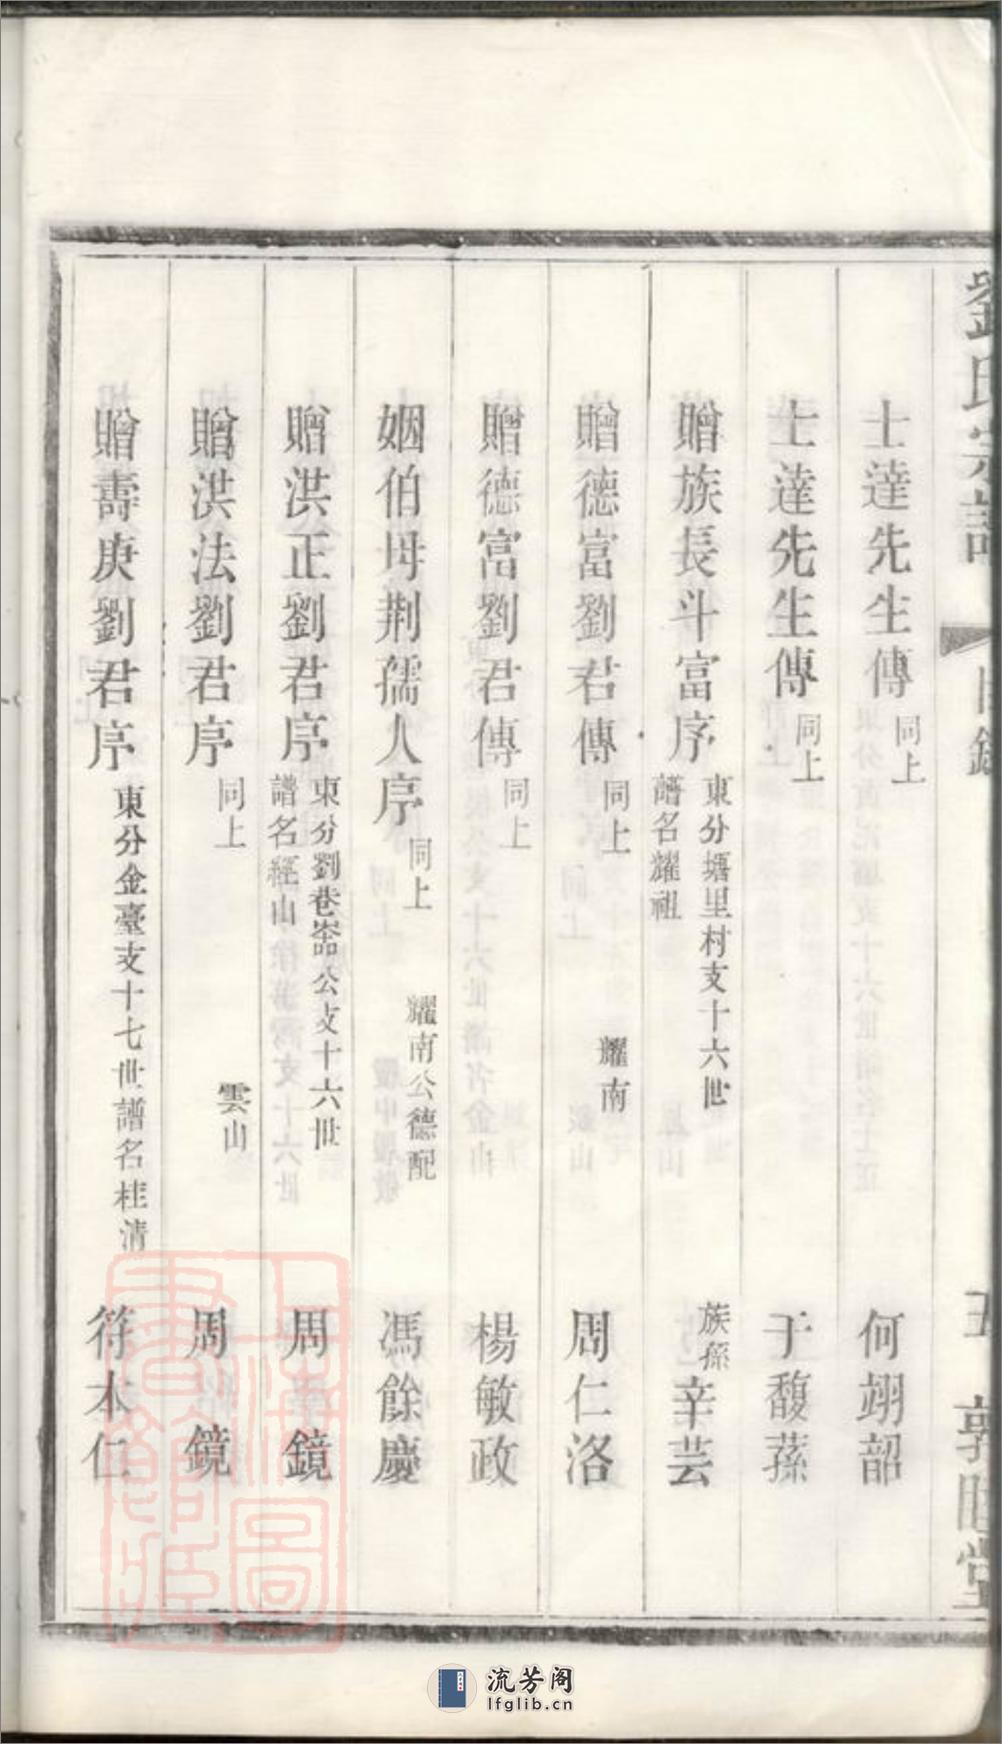 劉氏宗譜 目錄 五 敦睦堂
士達先生傳 同上 何翊韶
士達先生傳 同上 于馥蓀
贈族長斗富序 東分塘里村支十六世譜名耀祖 族孫辛芸
贈德富劉君傳 同上 耀南 周仁洛
贈德富劉君傳 同上 楊敏政
姻伯母荆孺人序 同上 耀南公德配 馮餘慶
贈洪正劉君序 東分劉巷崙公支十六世譜名經山 周鏡
贈洪法劉君序 同上 雲山 周鏡
贈壽庚劉君序 東分金臺支十七世譜名桂清 符本仁
上海圖書館藏
流芳阁
lfglib.cn